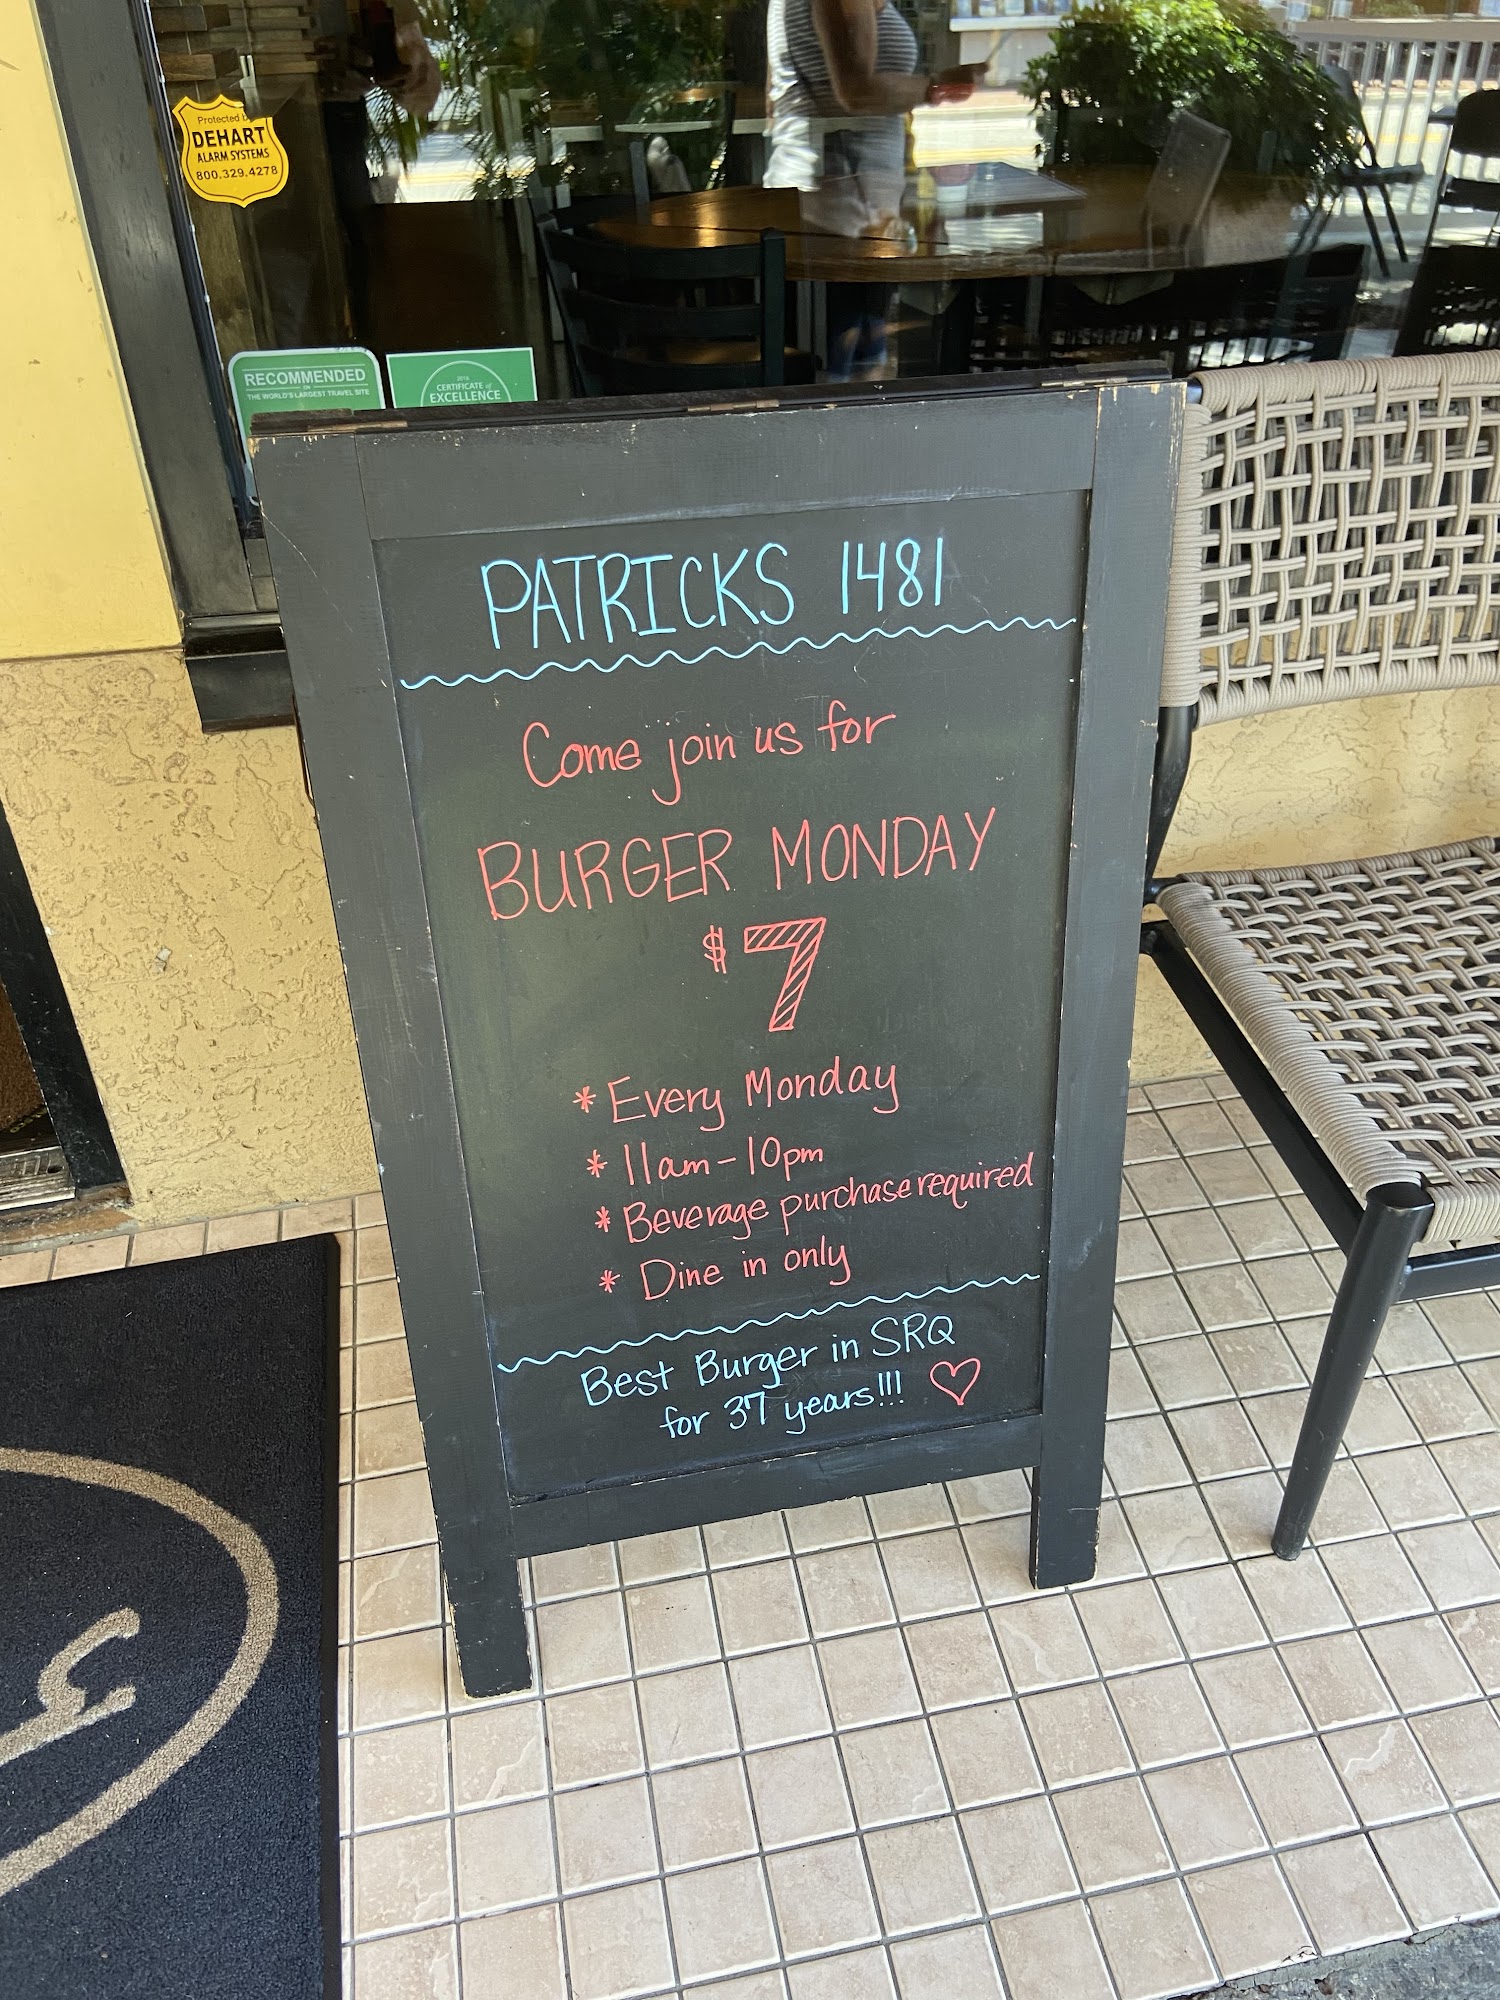 Protected
DEHART
ALARM SYSTEMS
800.329.4278
RECOMMENDED
ON
THE WORLD'S LARGEST TRAVEL SITE
CERTIFICATE of
EXCELLENCE
PATRICKS 1481
Come join us for
BURGER MONDAY
$7
* Every Monday
* 11am-10pm
* Beverage purchase required
* Dine in only
Best Burger in SRQ
for 37 years!!!